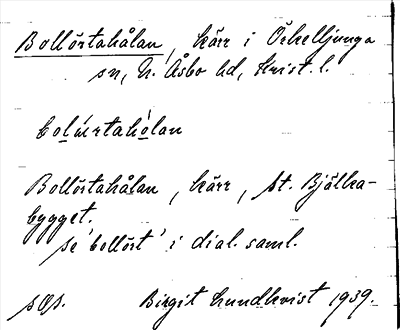 Bollörtahålan, kärr i Örkelljunga
sn, N. Åsbo hd, Krist. l.
bolẃrtahólan
Bollörtahålan, kärr, St. Bjälka-
bygget.
se 'bollört' i dial. saml.
Birgit Lundkvist 1939.